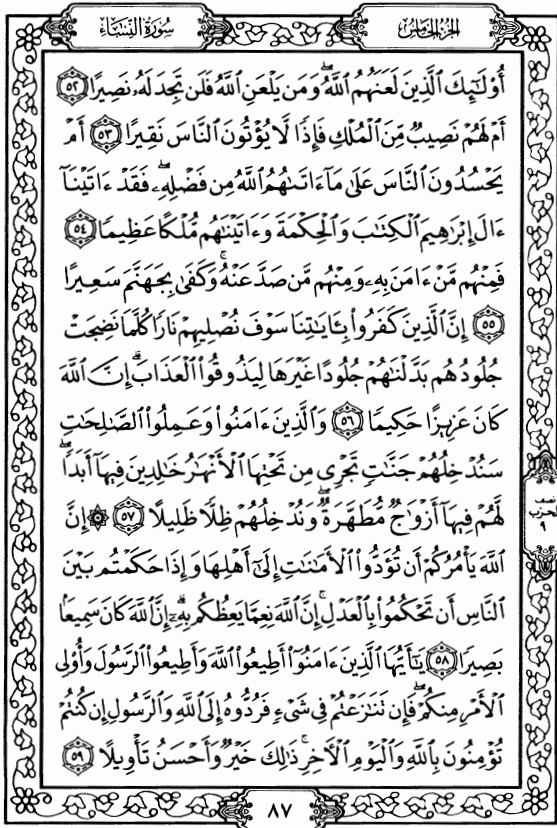 سُورَةُ النِّسَاءِ
الجُزْءُ الخَامِسُ
أُوْلَٰٓئِكَ ٱلَّذِينَ لَعَنَهُمُ ٱللَّهُۖ وَمَن يَلْعَنِ ٱللَّهُ فَلَن تَجِدَ لَهُۥ نَصِيرًا ٥٢
أَمْ لَهُمْ نَصِيبٌ مِّنَ ٱلْمُلْكِ فَإِذًا لَّا يُؤْتُونَ ٱلنَّاسَ نَقِيرًا ٥٣ أَمْ
يَحْسُدُونَ ٱلنَّاسَ عَلَىٰ مَآ ءَاتَىٰهُمُ ٱللَّهُ مِن فَضْلِهِۦۖ فَقَدْ ءَاتَيْنَآ
ءَالَ إِبْرَٰهِيمَ ٱلْكِتَٰبَ وَٱلْحِكْمَةَ وَءَاتَيْنَٰهُم مُّلْكًا عَظِيمًا ٥٤
فَمِنْهُم مَّنْ ءَامَنَ بِهِۦ وَمِنْهُم مَّن صَدَّ عَنْهُۚ وَكَفَىٰ بِجَهَنَّمَ سَعِيرًا
٥٥ إِنَّ ٱلَّذِينَ كَفَرُواْ بِـَٔايَٰتِنَا سَوْفَ نُصْلِيهِمْ نَارًا كُلَّمَا نَضِجَتْ
جُلُودُهُم بَدَّلْنَٰهُمْ جُلُودًا غَيْرَهَا لِيَذُوقُواْ ٱلْعَذَابَۗ إِنَّ ٱللَّهَ
كَانَ عَزِيزًا حَكِيمًا ٥٦ وَٱلَّذِينَ ءَامَنُواْ وَعَمِلُواْ ٱلصَّٰلِحَٰتِ
سَنُدْخِلُهُمْ جَنَّٰتٍ تَجْرِى مِن تَحْتِهَا ٱلْأَنْهَٰرُ خَٰلِدِينَ فِيهَآ أَبَدًاۖ
لَّهُمْ فِيهَآ أَزْوَٰجٌ مُّطَهَّرَةٌۖ وَنُدْخِلُهُمْ ظِلًّا ظَلِيلًا ٥٧ ۞ إِنَّ
ٱللَّهَ يَأْمُرُكُمْ أَن تُؤَدُّواْ ٱلْأَمَٰنَٰتِ إِلَىٰٓ أَهْلِهَا وَإِذَا حَكَمْتُم بَيْنَ
ٱلنَّاسِ أَن تَحْكُمُواْ بِٱلْعَدْلِۚ إِنَّ ٱللَّهَ نِعِمَّا يَعِظُكُم بِهِۦٓۗ إِنَّ ٱللَّهَ كَانَ سَمِيعًۢا
بَصِيرًا ٥٨ يَٰٓأَيُّهَا ٱلَّذِينَ ءَامَنُوٓاْ أَطِيعُواْ ٱللَّهَ وَأَطِيعُواْ ٱلرَّسُولَ وَأُوْلِى
ٱلْأَمْرِ مِنكُمْۖ فَإِن تَنَٰزَعْتُمْ فِى شَىْءٍ فَرُدُّوهُ إِلَى ٱللَّهِ وَٱلرَّسُولِ إِن كُنتُمْ
تُؤْمِنُونَ بِٱللَّهِ وَٱلْيَوْمِ ٱلْأَخِرِۚ ذَٰلِكَ خَيْرٌ وَأَحْسَنُ تَأْوِيلًا ٥٩
نصف
الحزب
٩
٨٧